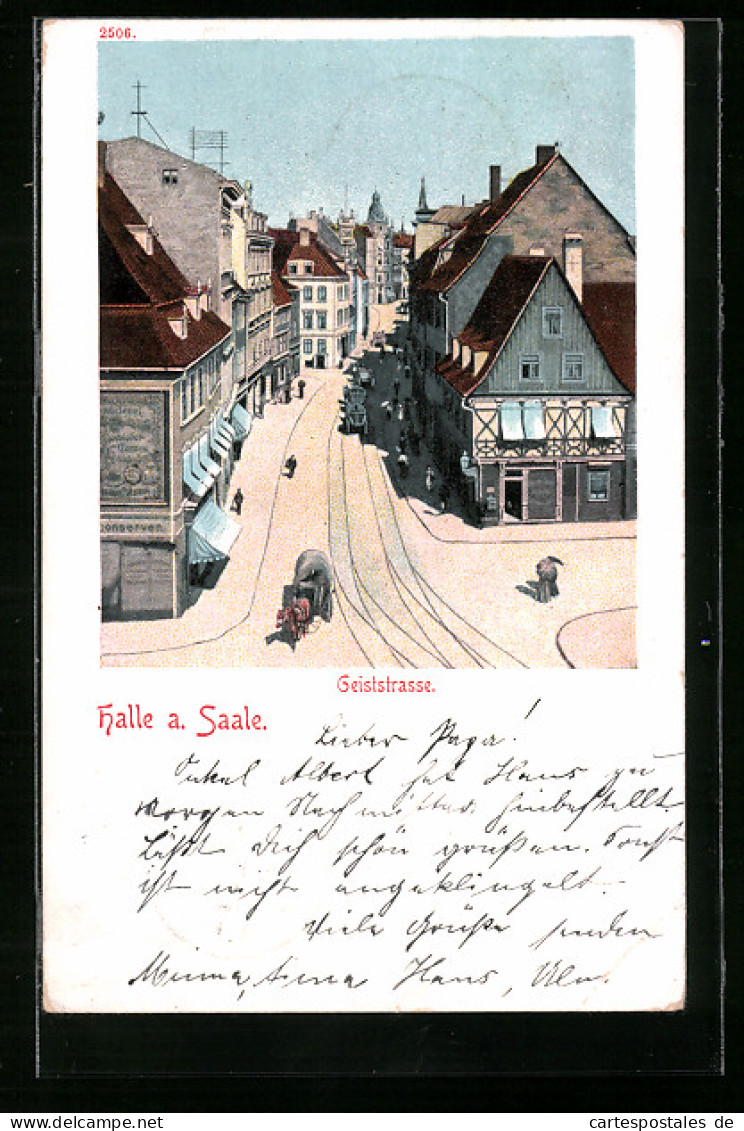 2506.
Konserven
Geiststrasse.
Halle a. Saale.
Lieber Papa!
Onkel Albert hat Hans zu
morgen Nachmittag hinbestellt
Läßt Dich schön grüßen. Sonst
ist nicht angeklingelt.
Viele Grüße senden
Minna, Anna Hans,
cartespostales de